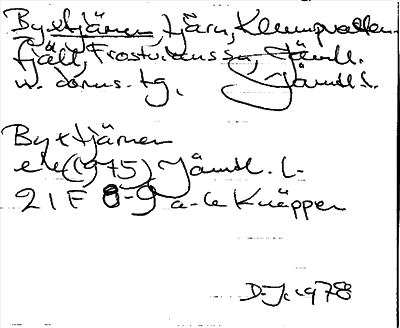 Byxtjärnen, tjärn, Klumpvatten-
fjäll, Frostvikens sn, Jämtl.
Jämtl. l.
Byxtjärnen
ek (1975) Jämtl. l.
21 F 8-9 a-c Knäppen
D.J. 1978